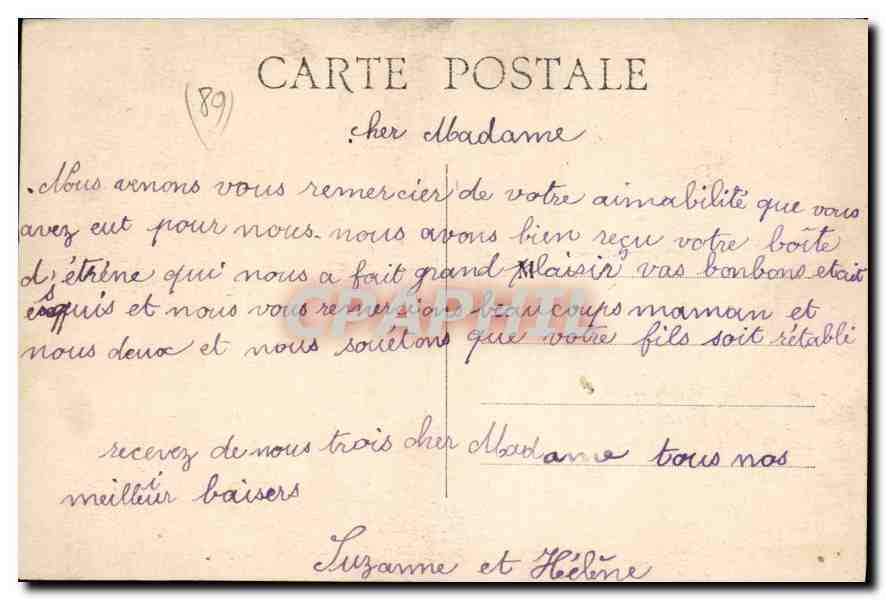 CARTE POSTALE
(89)
cher Madame
Nous venons vous remercier de votre aimabilité que vous
avez eut pour nous. nous avons bien reçu votre boîte
d'étrène qui nous a fait grand plaisir vas bonbons etait
esquis et nous vous remersions beaucoups maman et
nous deux et nous souetons que votre fils soit rétabli
CPAPHIL
recevez de nous trois cher Madame tous nos
meilleur baisers
Suzanne et Hélène